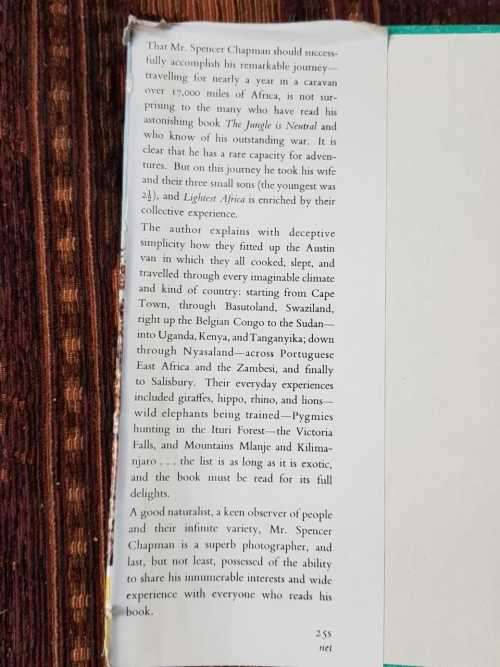 That Mr. Spencer Chapman should success-
fully accomplish his remarkable journey—
travelling for nearly a year in a caravan
over 17,000 miles of Africa, is not sur-
prising to the many who have read his
astonishing book The Jungle is Neutral and
who know of his outstanding war. It is
clear that he has a rare capacity for adven-
tures. But on this journey he took his wife
and their three small sons (the youngest was
2½), and Lightest Africa is enriched by their
collective experience.
The author explains with deceptive
simplicity how they fitted up the Austin
van in which they all cooked, slept, and
travelled through every imaginable climate
and kind of country: starting from Cape
Town, through Basutoland, Swaziland,
right up the Belgian Congo to the Sudan—
into Uganda, Kenya, and Tanganyika; down
through Nyasaland—across Portuguese
East Africa and the Zambesi, and finally
to Salisbury. Their everyday experiences
included giraffes, hippo, rhino, and lions—
wild elephants being trained—Pygmies
hunting in the Ituri Forest—the Victoria
Falls, and Mountains Mlanje and Kilima-
njaro . . . the list is as long as it is exotic,
and the book must be read for its full
delights.
A good naturalist, a keen observer of people
and their infinite variety, Mr. Spencer
Chapman is a superb photographer, and
last, but not least, possessed of the ability
to share his innumerable interests and wide
experience with everyone who reads his
book.
25s
net